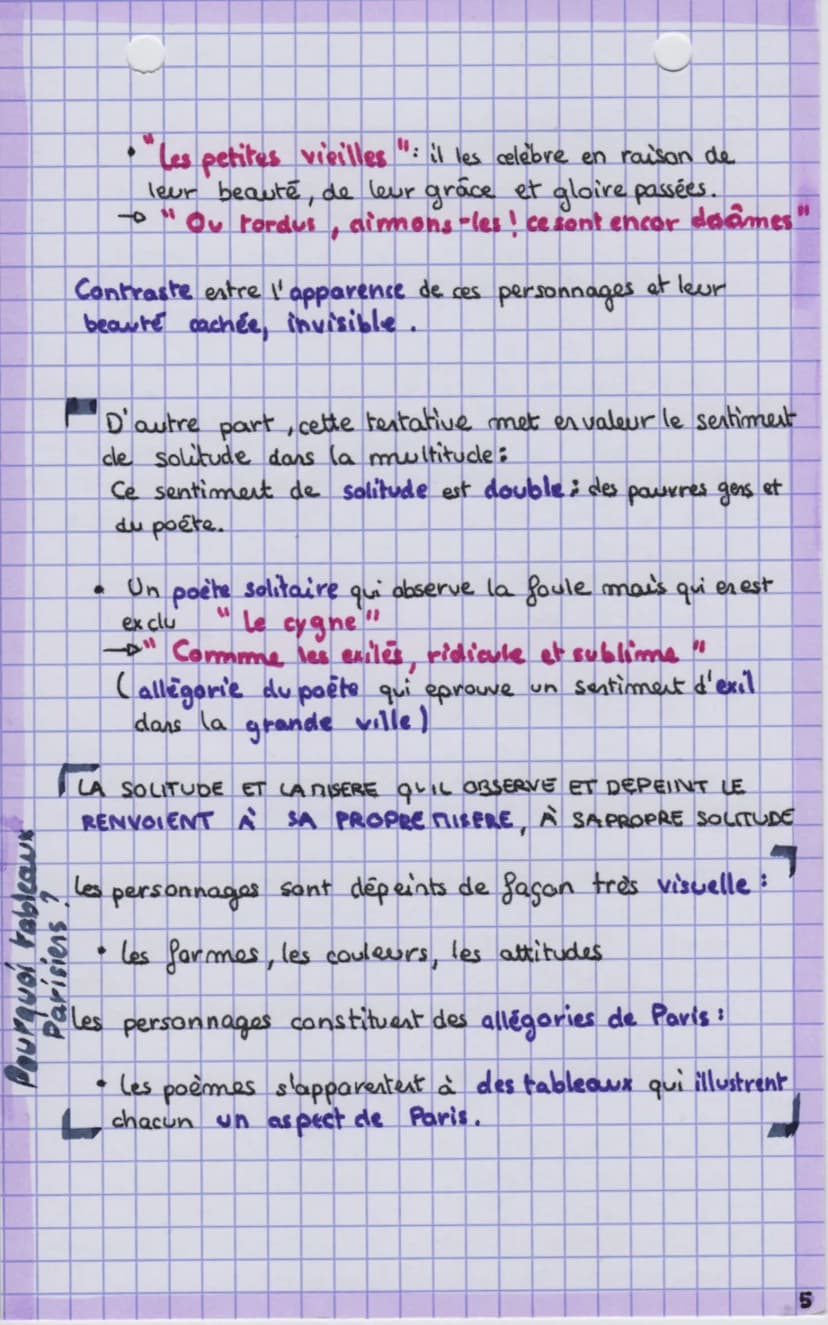 • "Les petites vieilles": il les celèbre en raison de
leur beauté, de leur grâce et gloire passées.
→ "Ou tordus, aimons-les! ce sont encor des âmes"
Contraste entre l'apparence de ces personnages et leur
beauté cachée, invisible.
D'autre part, cette tentative met en valeur le sentiment
de solitude dans la multitude:
Ce sentiment de solitude est double; des pauvres gens et
du poète.
• Un poète solitaire qui observe la foule mais qui en est
exclu "Le cygne"
→ "Comme les exilés, ridicule et sublime"
(allégorie du poète qui eprouve un sentiment d'exil
dans la grande ville)
LA SOLITUDE ET LA MISERE QU'IL OBSERVE ET DEPEINT LE
RENVOIENT À SA PROPRE MISERE, À SA PROPRE SOLITUDE
Pourquoi tableaux
Parisiens?
Les personnages sont dépeints de façon très visuelle:
• Les formes, les couleurs, les attitudes
Les personnages constituent des allégories de Paris:
• Les poèmes s'apparentent à des tableaux qui illustrent
chacun un aspect de Paris.
5